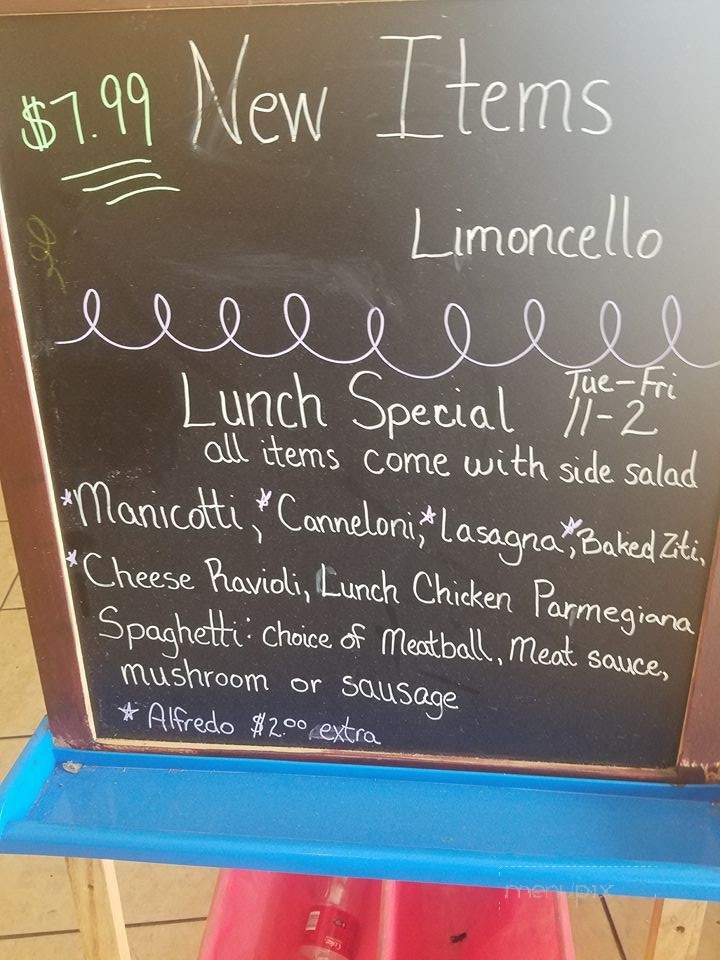 $7.99 New Items
Limoncello
Lunch Special Tue-Fri
11-2
all items come with side salad
*Manicotti, *Canneloni, *Lasagna, *Baked Ziti,
*Cheese Ravioli, Lunch Chicken Parmegiana
Spaghetti: choice of Meatball, Meat sauce,
mushroom or sausage
* Alfredo $2.00 extra
menupix